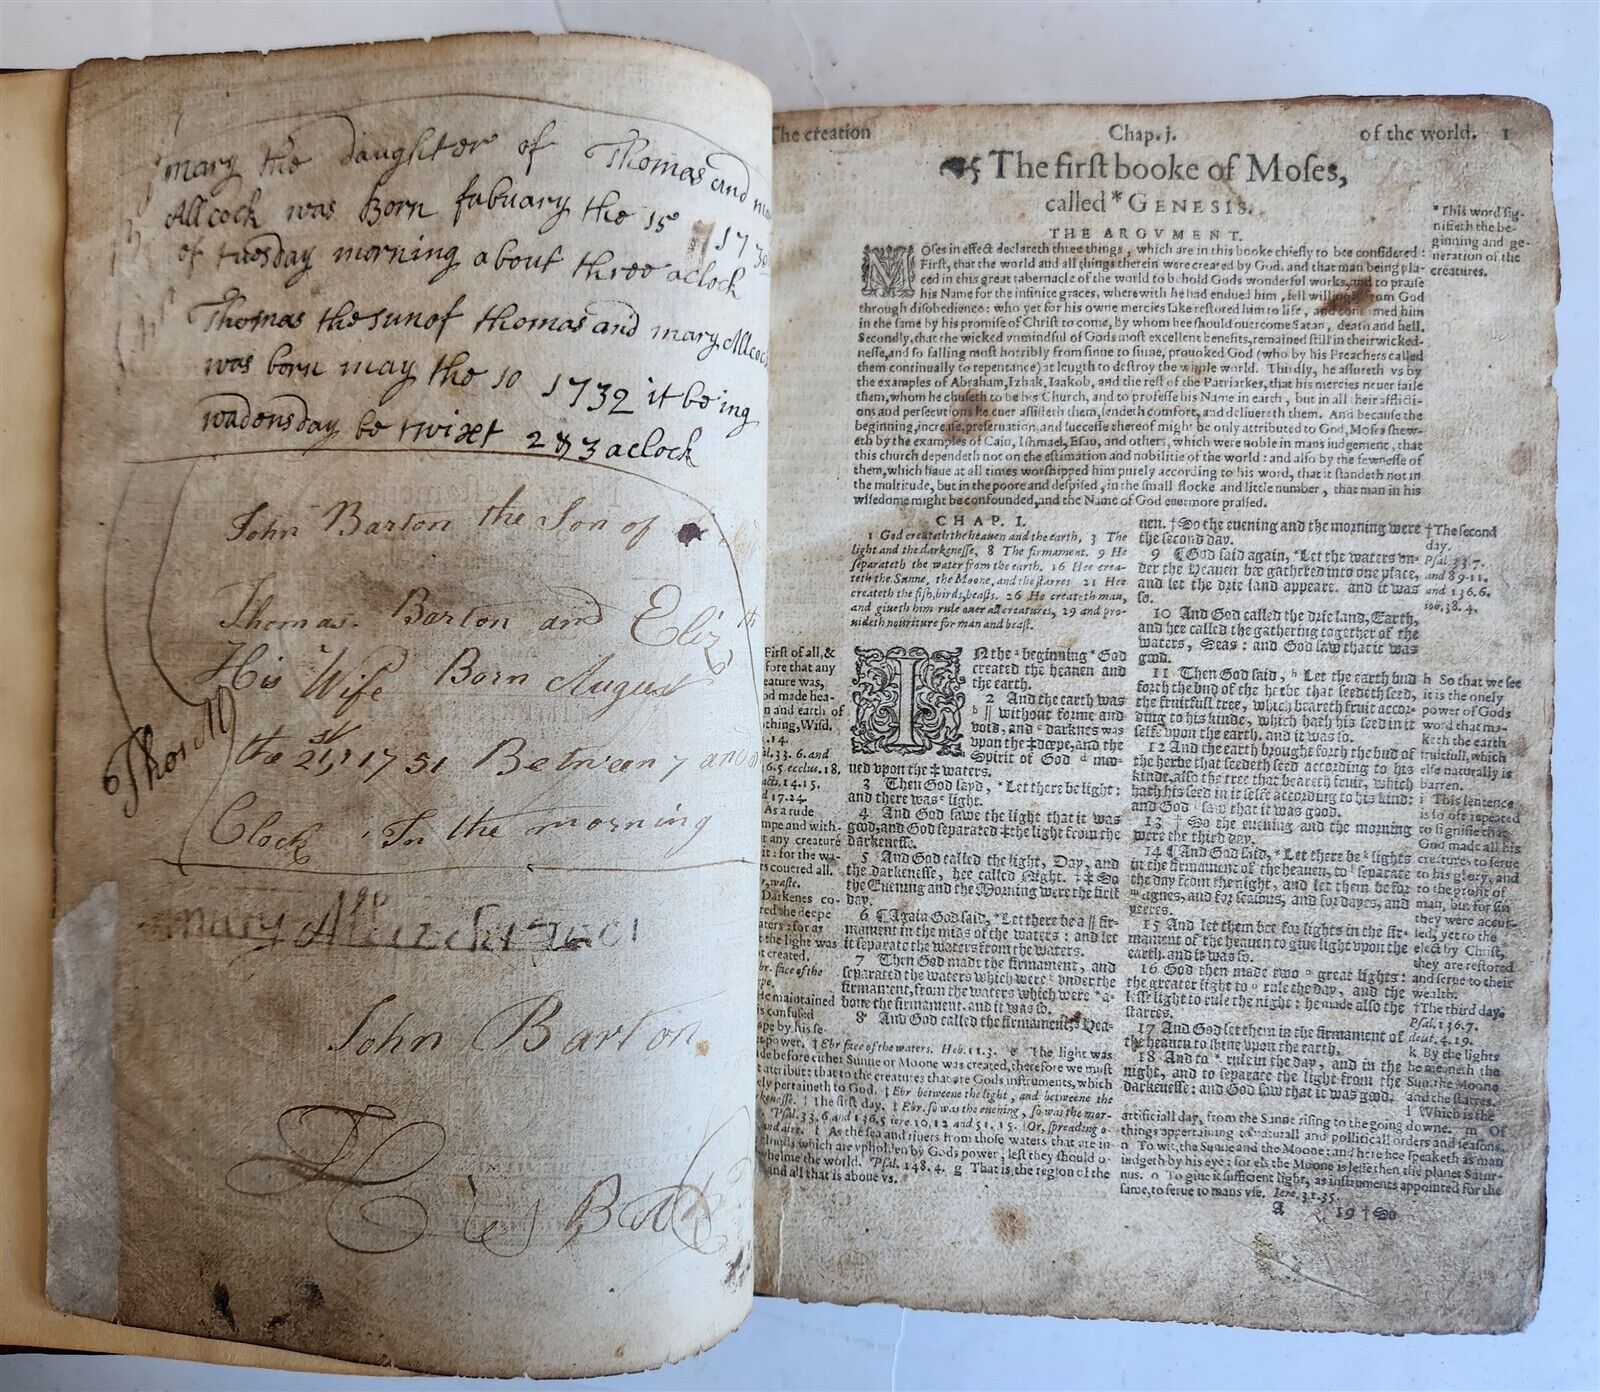 mary the daughter of Thomas and
Allcock was Born fabuary the 15 173
of tuesday morning about three aclock
Thomas the sun of thomas and mary Allcock
was born may the 10 1732 it being
wadensday be twixt 2 & 3 aclock
John Barton the Son of
Thomas Barton and Eliz th
His Wife Born August
the 21st 1751 Between 7 and
Clock In the morning
Thos
mary
John Barton
The creation Chap. j. of the world. 1
The first booke of Moses,
called * GENESIS.
THE ARGVMENT.
MOses in effect declareth three things, which are in this booke chiefly to bee considered:
First, that the world and all things therein were created by God, and that man being pla-
ced in this great tabernacle of the world to behold Gods wonderful works, and to praise
his Name for the infinite graces, wherewith he had endued him, fell from God
through disobedience: who yet for his owne mercies sake restored him to life, and med him
in the same by his promise of Christ to come, by whom hee should ouercome Satan, death and hell.
Secondly, that the wicked vnmindful of Gods most excellent benefits, remained still in their wicked-
nesse, and so falling most horribly from sinne to sinne, prouoked God (who by his Preachers called
them continually to repentance) at length to destroy the whole world. Thirdly, he assureth vs by
the examples of Abraham, Izhak, Iaakob, and the rest of the Patriarkes, that his mercies neuer faile
them, whom he chuseth to be his Church, and to professe his Name in earth, but in all their afflicti-
ons and persecutions he euer assisteth them, sendeth comfort, and deliuereth them. And because the
beginning, increase, preseruation, and successe thereof might be only attributed to God, Moses shew-
eth by the examples of Cain, Ishmael, Esau, and others, which were noble in mans iudgement, that
this church dependeth not on the estimation and nobilitie of the world: and also by the fewnesse of
them, which haue at all times worshipped him purely according to his word, that it standeth not in
the multitude, but in the poore and despised, in the small flocke and little number, that man in his
wisedome might be confounded, and the Name of God euermore praised.
* This word sig-
nifieth the be-
ginning and ge-
neration of the
creatures.
CHAP. I.
1 God createth the heauen and the earth, 3 The
light and the darkenesse, 8 The firmament. 9 He
separateth the water from the earth. 16 Hee crea-
teth the Sunne, the Moone, and the starres 21 Hee
createth the fish, birds, beasts. 26 He createth man,
and giueth him rule ouer all creatures, 29 and pro-
uideth nouriture for man and beast.
IN the beginning * God
created the heauen and
the earth.
2 And the earth was
b || without forme and
void, and darknes was
vpon the ‡ deepe, and the
Spirit of God d moo-
ued vpon the ‡ waters.
3 Then God sayd, * Let there be light:
and there was light.
4 And God sawe the light that it was
good, and God separated ‡ the light from the
darkenesse.
5 And God called the light, Day, and
the darkenesse, hee called Night. † ‡ So
the Euening and the Morning were the first
day.
6 ¶ Again God said, * Let there be a || fir-
mament in the mids of the waters: and let
it separate the waters from the waters.
7 Then God made the firmament, and
separated the waters which were vnder the
firmament, from the waters which were * a-
boue the firmament. and it was so.
8 And God called the firmament, Hea-
First of all, &
fore that any
eature was,
od made hea-
n and earth of
othing, Wisd.
.14.
al. 33. 6. and
6. 5. ecclus. 18.
acts. 14. 15.
d 17. 24.
As a rude
mpe and with-
t any creature
it: for the wa-
rs couered all.
r, waste.
Darkenes co-
red the deepe
aters: for as
t the light was
ot created.
br. face of the
pe.
He maintained
is confused
ape by his se-
t power. ‡ Ebr face of the waters. Heb. 11. 3. e The light was
de before either Sunne or Moone was created, therefore we must
t attribute that to the creatures that are Gods instruments, which
ely pertaineth to God. ‡ Ebr betweene the light, and betweene the
rkenesse. † The first day. ‡ Ebr. so was the euening, so was the mor-
* Psal. 33. 6. and 136. 5 iere 10. 12 and 51. 15. || Or, spreading o-
and aire. f As the sea and riuers from those waters that are in
clouds which are vpholden by Gods power, lest they should o-
whelme the world. * Psal. 148. 4. g That is, the region of the
and all that is aboue vs.
uen. † So the euening and the morning were
the second day.
9 ¶ God said again, * Let the waters vn-
der the heauen bee gathered into one place,
and let the drie land appeare. and it was
so.
10 And God called the drie land, Earth,
and hee called the gathering together of the
waters, Seas: and God saw that it was
good.
11 Then God said, h Let the earth bud
forth the bud of the herbe that seedeth seed,
the fruitfull tree, which beareth fruit accor-
ding to his kinde, which hath his seed in it
selfe vpon the earth. and it was so.
12 And the earth brought forth the bud of
the herbe that seedeth seed according to his
kinde, also the tree that beareth fruit, which
hath his seed in it selfe according to his kind:
and God i saw that it was good.
13 † So the euening and the morning
were the third day.
14 ¶ And God said, * Let there be k lights
in the firmament of the heauen, to l separate
the day from the night, and let them be for
m signes, and for seasons, and for dayes, and
yeeres.
15 And let them bee for lights in the fir-
mament of the heauen to giue light vpon the
earth. and it was so.
16 God then made two n great lights:
the greater light to o rule the day, and the
lesse light to rule the night: he made also the
starres.
17 And God set them in the firmament of
the heauen to shine vpon the earth.
18 And to * rule in the day, and in the
night, and to separate the light from the
darkenesse: and God saw that it was good.
† The second
day.
Psal. 33. 7.
and 89. 11.
and 136. 6.
iob, 38. 4.
h So that we see
it is the onely
power of Gods
word that ma-
keth the earth
fruitfull, which
else naturally is
barren.
i This sentence
is so oft repeated
to signifie that
God made all his
creatures to serue
to his glory, and
to the profit of
man, but for sin
they were accur-
sed, yet to the
elect by Christ,
they are restored
and serue to their
wealth.
† The third day.
Psal. 136. 7.
deut. 4. 19.
k By the lights
he meaneth the
Sun, the Moone
and the starres.
l Which is the
artificiall day, from the Sunne rising to the going downe. m Of
things appertaining to naturall and politicall orders and seasons.
n To wit, the Sunne and the Moone: and here hee speaketh as man
iudgeth by his eye: for els the Moone is lesse then the planet Satur-
nus. o To giue it sufficient light, as instruments appointed for the
same, to serue to mans vse. Iere, 31. 35.
A 19 † So